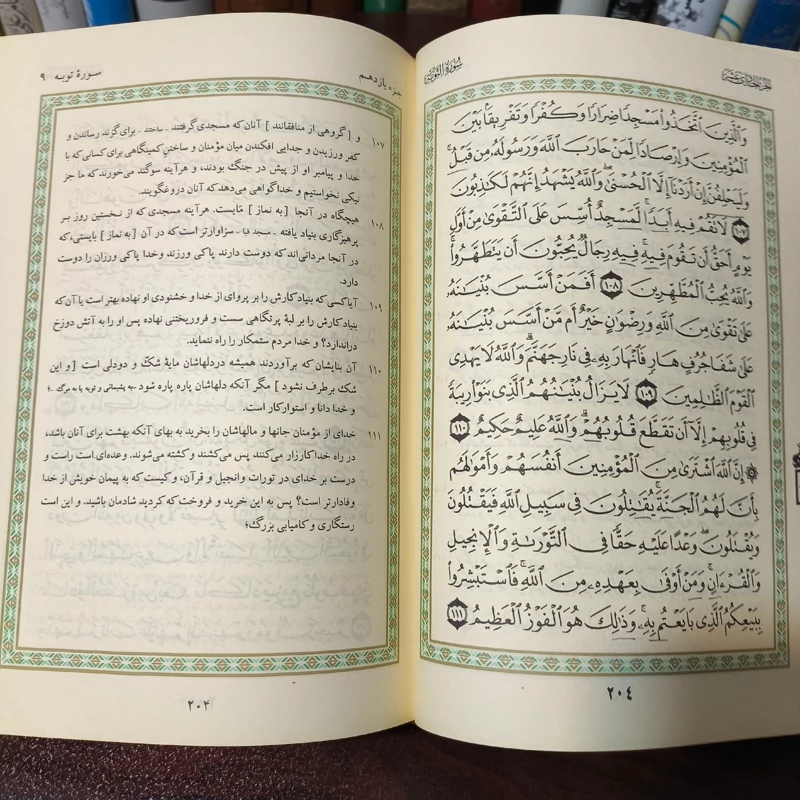 سُورَةُ التَّوبَةِ
الجزء الحادی عشر
وَالَّذِينَ اتَّخَذُوا مَسْجِدًا ضِرَارًا وَكُفْرًا وَتَفْرِيقًا بَيْنَ
الْمُؤْمِنِينَ وَإِرْصَادًا لِمَنْ حَارَبَ اللَّهَ وَرَسُولَهُ مِن قَبْلُ
وَلَيَحْلِفُنَّ إِنْ أَرَدْنَا إِلَّا الْحُسْنَىٰ وَاللَّهُ يَشْهَدُ إِنَّهُمْ لَكَاذِبُونَ
۱۰۷ لَا تَقُمْ فِيهِ أَبَدًا لَّمَسْجِدٌ أُسِّسَ عَلَى التَّقْوَىٰ مِنْ أَوَّلِ
يَوْمٍ أَحَقُّ أَن تَقُومَ فِيهِ فِيهِ رِجَالٌ يُحِبُّونَ أَن يَتَطَهَّرُوا
وَاللَّهُ يُحِبُّ الْمُطَّهِّرِينَ ۱۰۸ أَفَمَنْ أَسَّسَ بُنْيَانَهُ
عَلَىٰ تَقْوَىٰ مِنَ اللَّهِ وَرِضْوَانٍ خَيْرٌ أَم مَّنْ أَسَّسَ بُنْيَانَهُ
عَلَىٰ شَفَا جُرُفٍ هَارٍ فَانْهَارَ بِهِ فِي نَارِ جَهَنَّمَ وَاللَّهُ لَا يَهْدِي
الْقَوْمَ الظَّالِمِينَ ۱۰۹ لَا يَزَالُ بُنْيَانُهُمُ الَّذِي بَنَوْا رِيبَةً
فِي قُلُوبِهِمْ إِلَّا أَن تَقَطَّعَ قُلُوبُهُمْ وَاللَّهُ عَلِيمٌ حَكِيمٌ ۱۱۰
إِنَّ اللَّهَ اشْتَرَىٰ مِنَ الْمُؤْمِنِينَ أَنفُسَهُمْ وَأَمْوَالَهُم
بِأَنَّ لَهُمُ الْجَنَّةَ يُقَاتِلُونَ فِي سَبِيلِ اللَّهِ فَيَقْتُلُونَ
وَيُقْتَلُونَ وَعْدًا عَلَيْهِ حَقًّا فِي التَّوْرَاةِ وَالْإِنجِيلِ
وَالْقُرْءَانِ وَمَنْ أَوْفَىٰ بِعَهْدِهِ مِنَ اللَّهِ فَاسْتَبْشِرُوا
بِبَيْعِكُمُ الَّذِي بَايَعْتُم بِهِ وَذَٰلِكَ هُوَ الْفَوْزُ الْعَظِيمُ ۱۱۱
٢٠٤
جزء یازدهم
سورهٔ توبه ۹
۱۰۷ و [گروهی از منافقانند] آنان که مسجدی گرفتند ـ ساختند ـ برای گزند رساندن و
کفر ورزیدن و جدایی افکندن میان مؤمنان و ساختن کمینگاهی برای کسانی که با
خدا و پیامبر او از پیش در جنگ بودند، و هرآینه سوگند می‌خورند که ما جز
نیکی نخواستیم و خدا گواهی می‌دهد که آنان دروغگویند.
۱۰۸ هیچگاه در آنجا [به نماز] مَایست. هرآینه مسجدی که از نخستین روز بر
پرهیزگاری بنیاد یافته ـ مسجد قبا ـ سزاوارتر است که در آن [به نماز] بایستی، که
در آنجا مردانی‌اند که دوست دارند پاکی ورزند و خدا پاکی ورزان را دوست
دارد.
۱۰۹ آیا کسی که بنیاد کارش را بر پروای از خدا و خشنودی او نهاده بهتر است یا آن که
بنیاد کارش را بر لبهٔ پرتگاهی سست و فروریختنی نهاده پس او را به آتش دوزخ
دراندازد؟ و خدا مردم ستمکار را راه ننماید.
۱۱۰ آن بنایشان که برآوردند همیشه در دلهاشان مایهٔ شکّ و دودلی است [و این
شک برطرف نشود] مگر آنکه دلهاشان پاره پاره شود ـ به پشیمانی و توبه یا به مرگ ـ،
و خدا دانا و استوار کار است.
۱۱۱ خدای از مؤمنان جانها و مالهاشان را بخرید به بهای آنکه بهشت برای آنان باشد،
در راه خدا کارزار می‌کنند پس می‌کشند و کشته می‌شوند. وعده‌ای است راست و
درست بر خدای در تورات و انجیل و قرآن، و کیست که به پیمان خویش از خدا
وفادارتر است؟ پس به این خرید و فروخت که کردید شادمان باشید. و این است
رستگاری و کامیابی بزرگ؛
۲۰۴